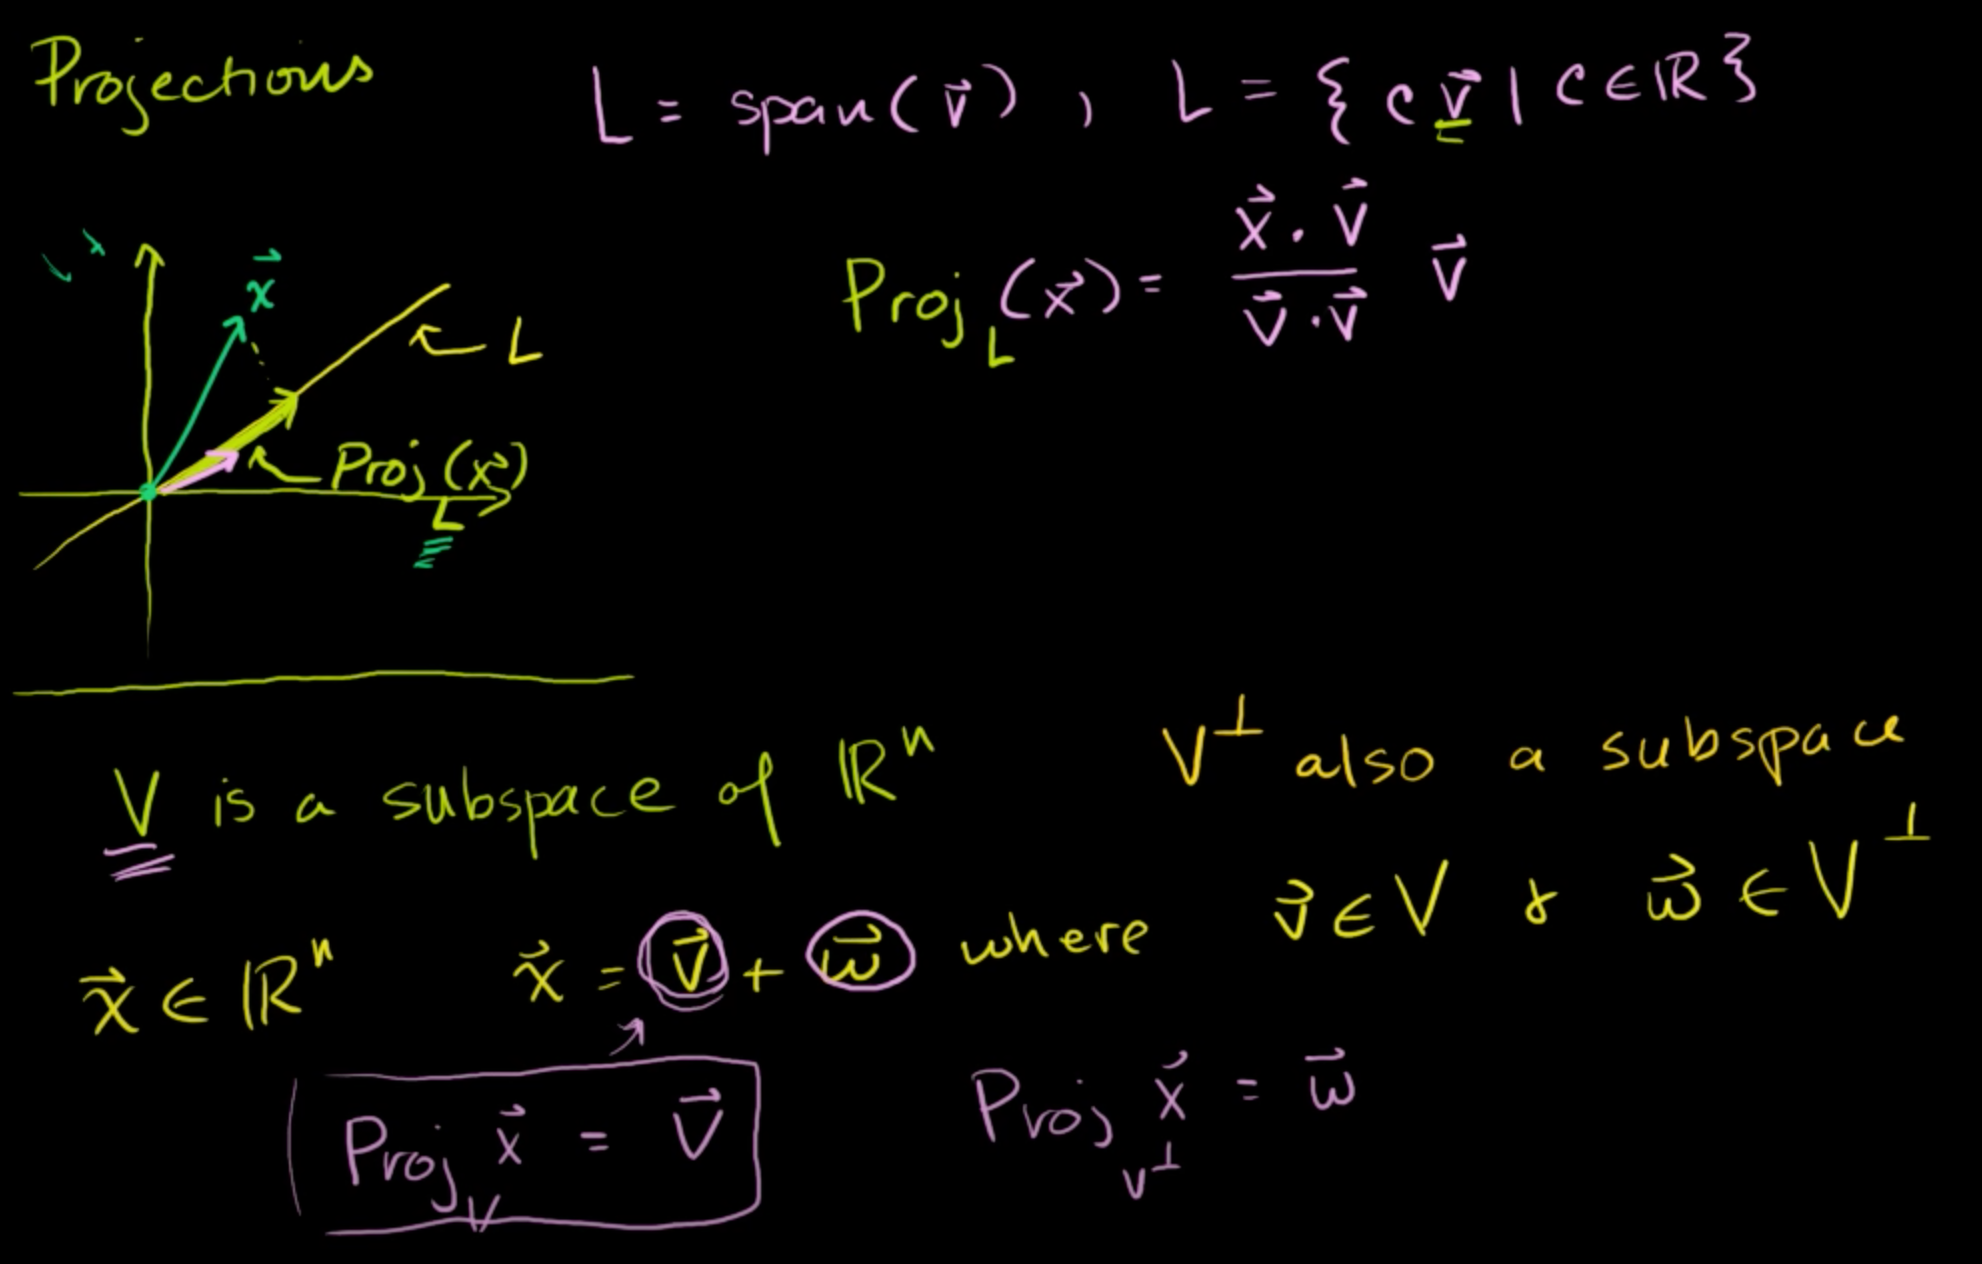 Projections
L = span(v⃗), L = { c v⃗ | c ∈ ℝ }
Proj_L(x⃗) = (x⃗ · v⃗)/(v⃗ · v⃗) v⃗
x⃗
L
Proj_L(x⃗)
V is a subspace of ℝⁿ
V^⊥ also a subspace
x⃗ ∈ ℝⁿ
x⃗ = v⃗ + w⃗ where v⃗ ∈ V & w⃗ ∈ V^⊥
Proj_V x⃗ = v⃗
Proj_V^⊥ x⃗ = w⃗